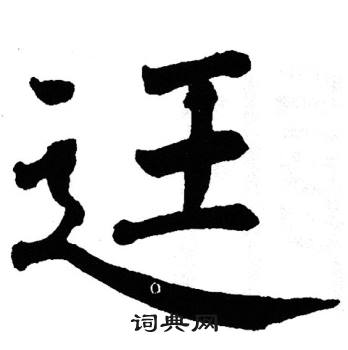 迋
词典网